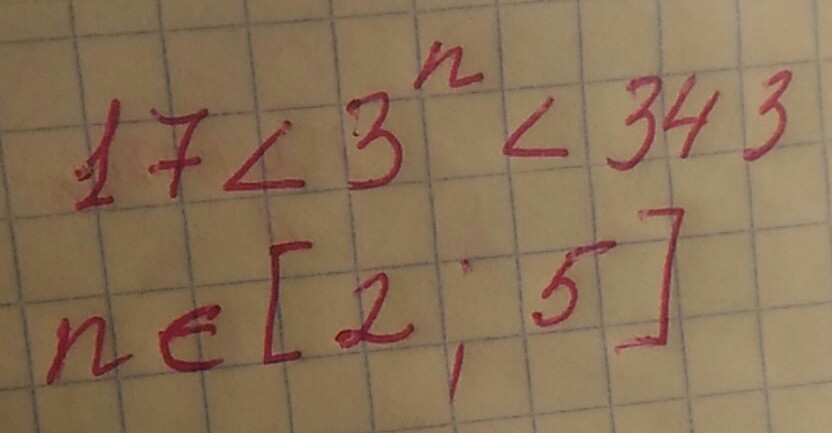 17 < 3ⁿ < 343
n ∈ [2; 5]